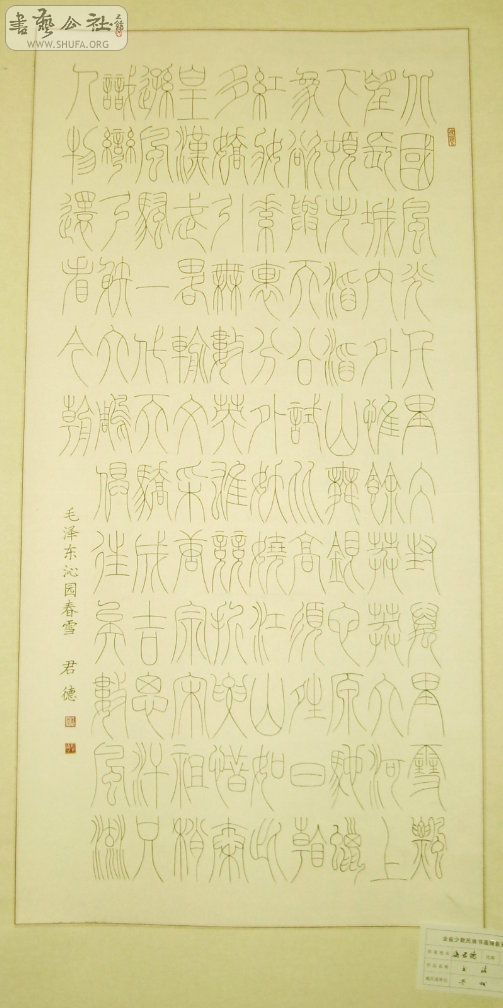 書藝公社
WWW.SHUFA.ORG
北國風光千里冰封萬里雪飄
望長城內外惟餘莽莽大河上
下頓失滔滔山舞銀蛇原馳蠟
象欲與天公試比高須晴日看
紅妝素裹分外妖嬈江山如此
多嬌引無數英雄競折腰惜秦
皇漢武略輸文采唐宗宋祖稍
遜風騷一代天驕成吉思汗只
識彎弓射大雕俱往矣數風流
人物還看今朝
毛泽东沁园春雪 君德